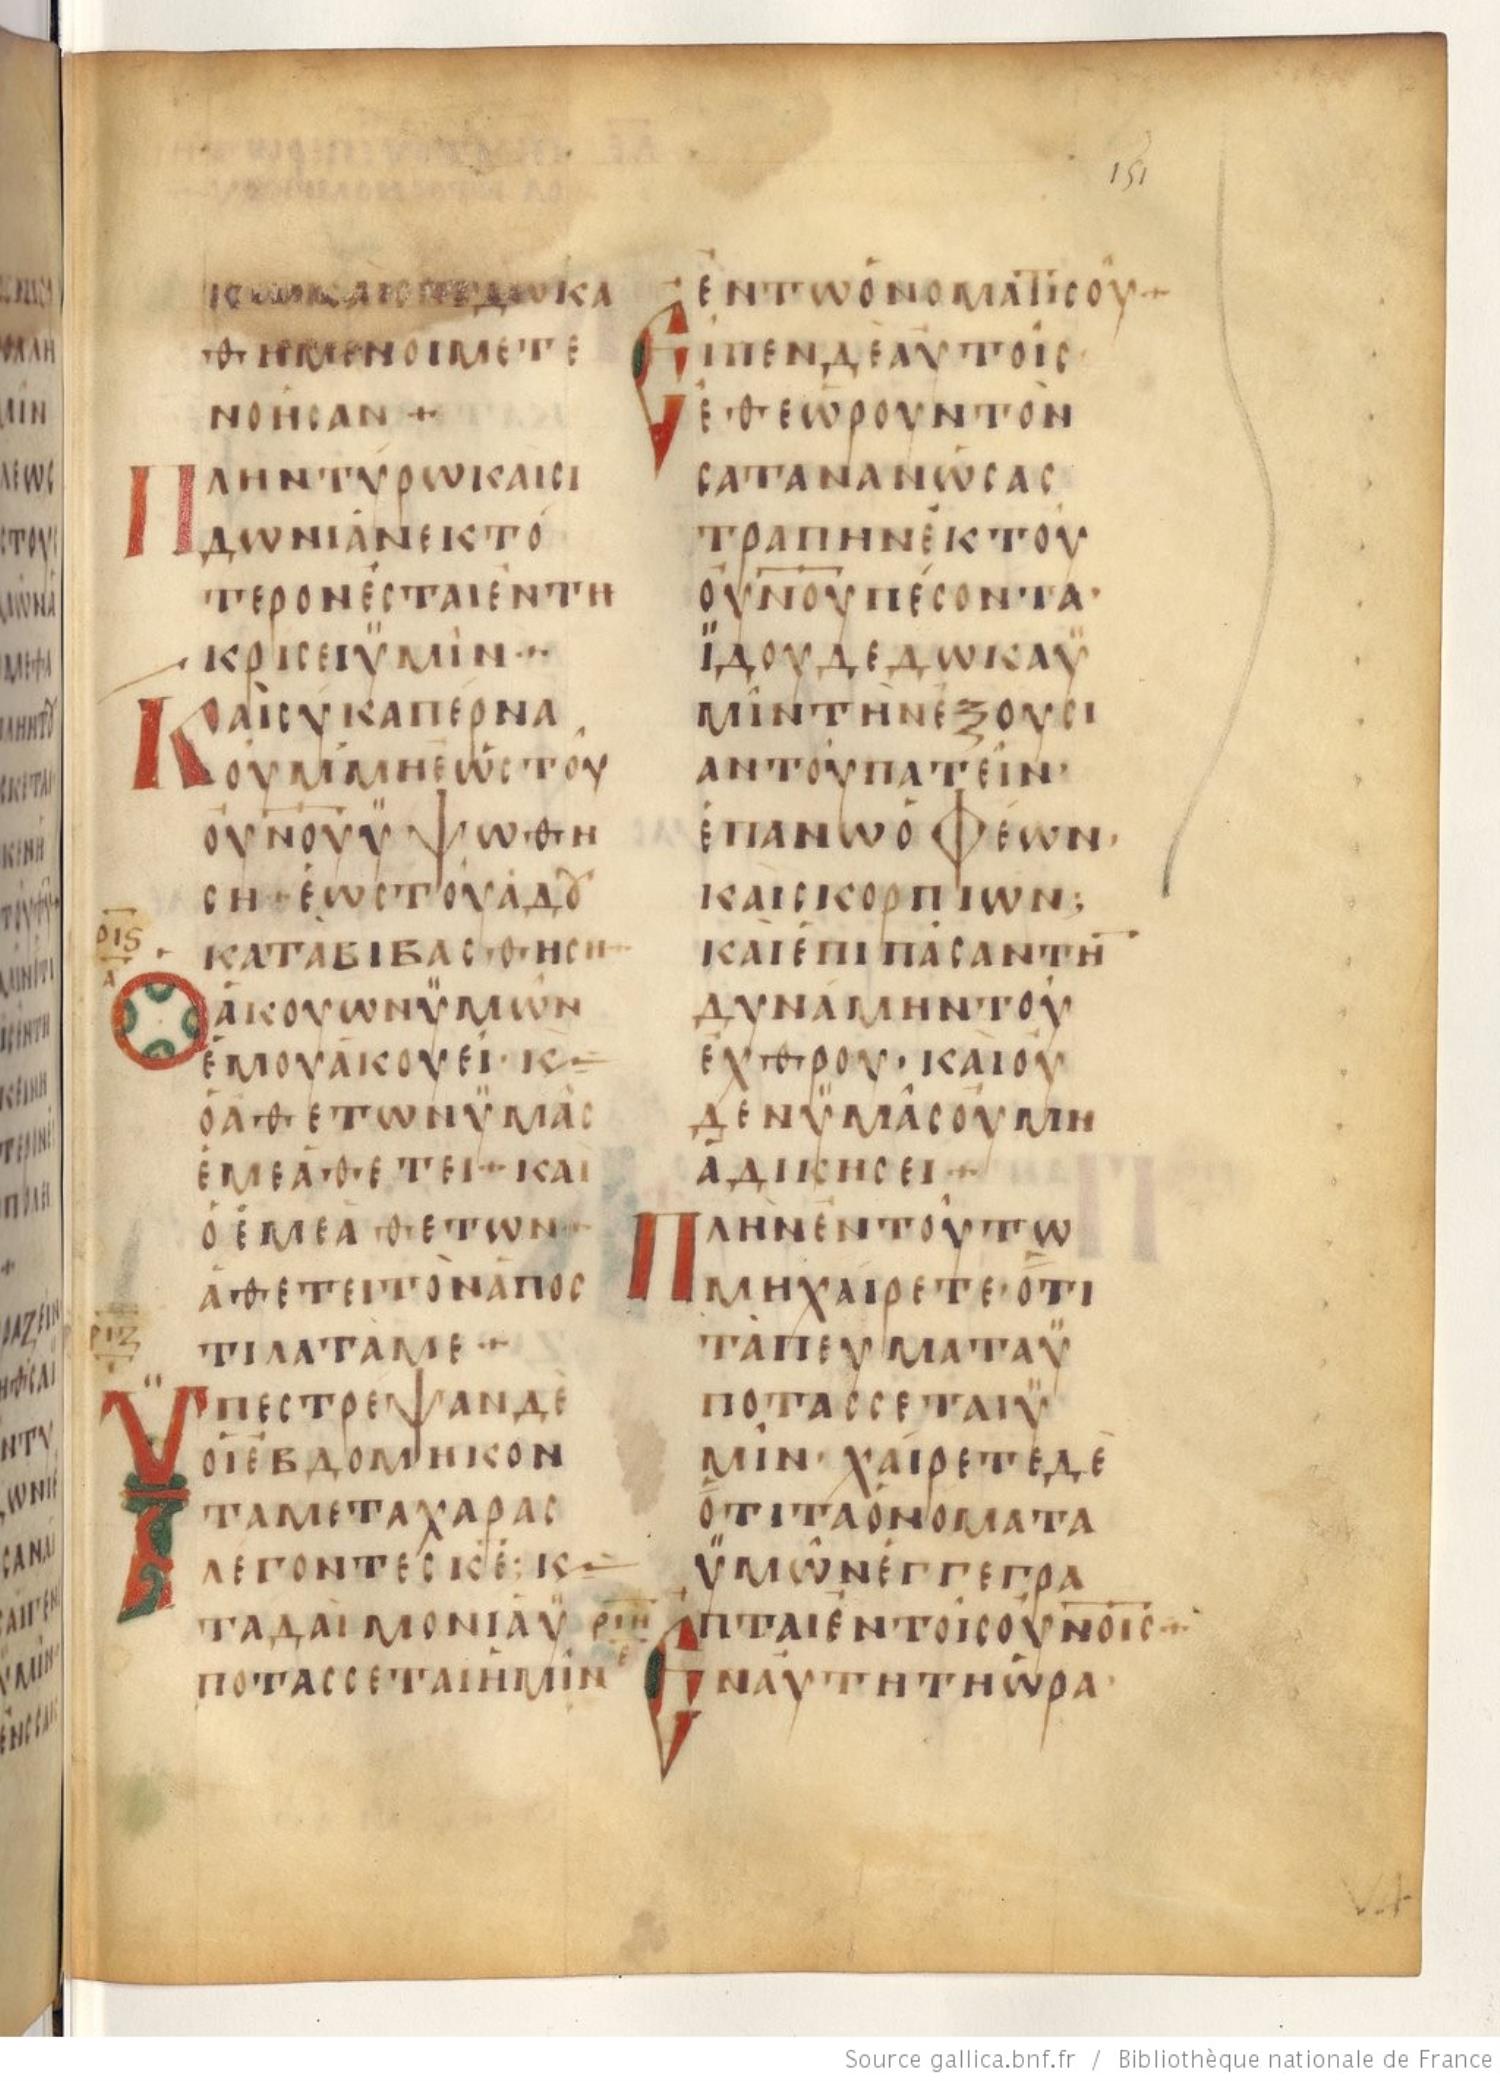 151
ΚΩ ΚΑΙ ΚΑ
ΘΗΜΕΝΟΙ ΜΕΤΕ
ΝΟΗΣΑΝ +
ΠΛΗΝ ΤΥΡΩ ΚΑΙ ΣΙ
ΔΩΝΙ ΑΝΕΚΤΟ
ΤΕΡΟΝ ΕΣΤΑΙ ΕΝ ΤΗ
ΚΡΙΣΕΙ ΫΜΙΝ +
ΚΑΙ ΣΥ ΚΑΠΕΡΝΑ
ΟΥΜ ΜΗ ΕΩΣ ΤΟΥ
ΟΥΝΟΥ ΫΨΩΘΗ
ΣΗ · ΕΩΣ ΤΟΥ ΑΔΟΥ
ΚΑΤΑΒΙΒΑΣΘΗΣΗ +
ΡΙϚ
Α
Ο ΑΚΟΥΩΝ ΫΜΩΝ
ΕΜΟΥ ΑΚΟΥΕΙ · Κ
Ο ΑΘΕΤΩΝ ΫΜΑΣ
ΕΜΕ ΑΘΕΤΕΙ + ΚΑΙ
Ο ΕΜΕ ΑΘΕΤΩΝ +
ΑΘΕΤΕΙ ΤΟΝ ΑΠΟΣ
ΤΙΛΑΤΑ ΜΕ +
ΡΙΖ
ΫΠΕΣΤΡΕΨΑΝ ΔΕ
ΟΙ ΕΒΔΟΜΗΚΟΝ
ΤΑ ΜΕΤΑ ΧΑΡΑΣ
ΛΕΓΟΝΤΕΣ ΚΕ : Κ
ΤΑ ΔΑΙΜΟΝΙΑ Ϋ
ΠΟΤΑΣΣΕΤΑΙ ΗΜΙΝ
ΕΝ ΤΩ ΟΝΟΜΑΤΙ ΣΟΥ +
ΕΙΠΕΝ ΔΕ ΑΥΤΟΙΣ ·
ΕΘΕΩΡΟΥΝ ΤΟΝ
ΣΑΤΑΝΑΝ ΩΣ ΑΣ
ΤΡΑΠΗΝ ΕΚ ΤΟΥ
ΟΥΝΟΥ ΠΕΣΟΝΤΑ ·
ΪΔΟΥ ΔΕΔΩΚΑ Ϋ
ΜΙΝ ΤΗΝ ΕΞΟΥΣΙ
ΑΝ ΤΟΥ ΠΑΤΕΙΝ ·
ΕΠΑΝΩ ΟΦΕΩΝ ·
ΚΑΙ ΣΚΟΡΠΙΩΝ ;
ΚΑΙ ΕΠΙ ΠΑΣΑΝ ΤΗ
ΔΥΝΑΜΗΝ ΤΟΥ
ΕΧΘΡΟΥ · ΚΑΙ ΟΥ
ΔΕΝ ΫΜΑΣ ΟΥ ΜΗ
ΑΔΙΚΗΣΕΙ +
ΠΛΗΝ ΕΝ ΤΟΥΤΩ
ΜΗ ΧΑΙΡΕΤΕ · ΟΤΙ
ΤΑ ΠΕΥΜΑΤΑ Ϋ
ΠΟΤΑΣΣΕΤΑΙ Ϋ
ΜΙΝ · ΧΑΙΡΕΤΕ ΔΕ
ΟΤΙ ΤΑ ΟΝΟΜΑΤΑ
ΫΜΩΝ ΕΓΓΕΓΡΑ
ΠΤΑΙ ΕΝ ΤΟΙΣ ΟΥΝΟΙΣ +
ΡΙΗ
Ε
ΕΝ ΑΥΤΗ ΤΗ ΩΡΑ ·
Source gallica.bnf.fr / Bibliothèque nationale de France